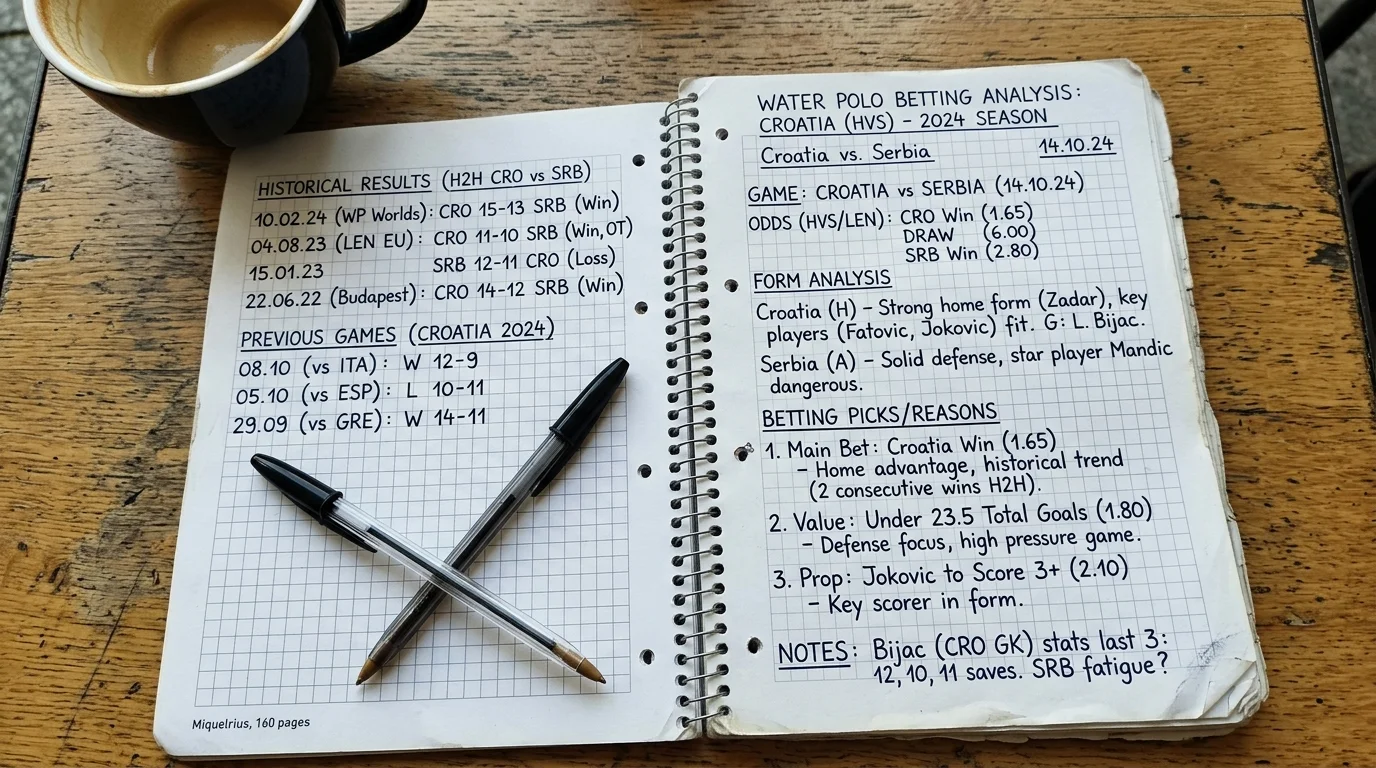 HISTORICAL RESULTS (H2H CRO vs SRB)
10.02.24 (WP Worlds): CRO 15-13 SRB (Win)
04.08.23 (LEN EU): CRO 11-10 SRB (Win, OT)
15.01.23 SRB 12-11 CRO (Loss)
22.06.22 (Budapest): CRO 14-12 SRB (Win)
PREVIOUS GAMES (CROATIA 2024)
08.10 (vs ITA): W 12-9
05.10 (vs ESP): L 10-11
29.09 (vs GRE): W 14-11
Miquelrius, 160 pages
WATER POLO BETTING ANALYSIS:
CROATIA (HVS) - 2024 SEASON
Croatia vs. Serbia 14.10.24
GAME: CROATIA vs SERBIA (14.10.24)
ODDS (HVS/LEN): CRO Win (1.65)
DRAW (6.00)
SRB Win (2.80)
FORM ANALYSIS
Croatia (H) - Strong home form (Zadar), key
players (Fatovic, Jokovic) fit. G: L. Bijac.
Serbia (A) - Solid defense, star player Mandic
dangerous.
BETTING PICKS/REASONS
1. Main Bet: Croatia Win (1.65)
- Home advantage, historical trend
(2 consecutive wins H2H).
2. Value: Under 23.5 Total Goals (1.80)
- Defense focus, high pressure game.
3. Prop: Jokovic to Score 3+ (2.10)
- Key scorer in form.
NOTES: Bijac (CRO GK) stats last 3:
12, 10, 11 saves. SRB fatigue?